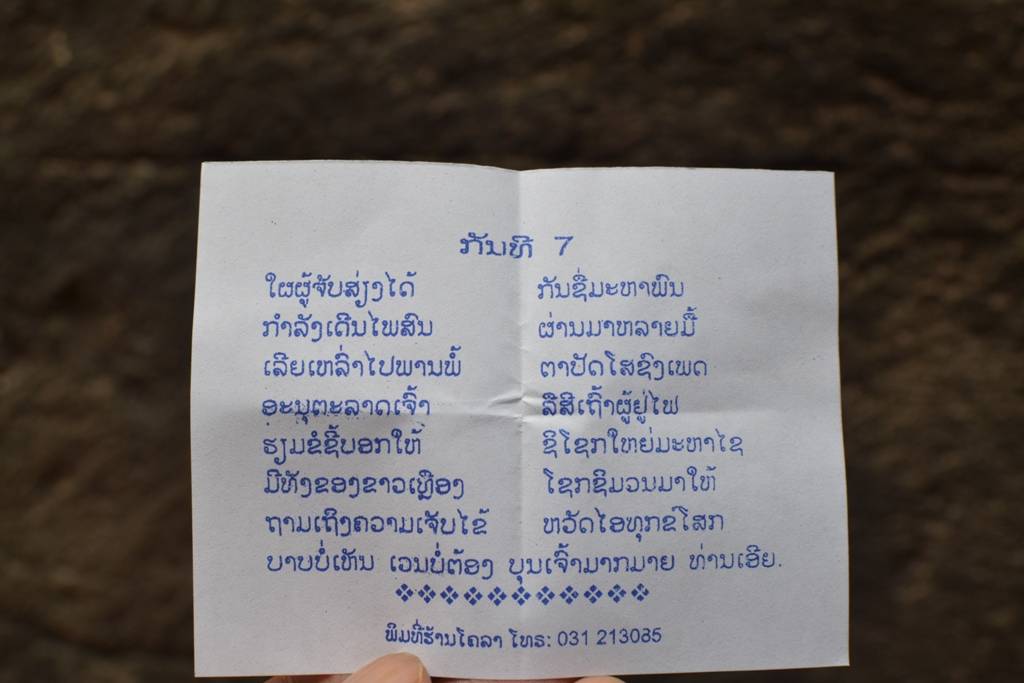 ກັນທີ 7
ໃຜຜູ້ຈັບສ່ຽງໄດ້ ກັນຊື່ມະຫາພົນ
ກຳລັງເດີນໄພສົນ ຜ່ານມາຫລາຍມື້
ເລີຍເຫລົ່າໄປພານພໍ້ ຕາປັດໂສຊົງເພດ
ອະນຸຕະລາດເຈົ້າ ລືສີເຖົ້າຜູ້ຢູ່ໄພ
ຮຽມຂໍຊີ້ບອກໃຫ້ ຊິໂຊກໃຫຍ່ມະຫາໄຊ
ມີທັງຂອງຂາວເຫຼືອງ ໂຊກຊິມວນມາໃຫ້
ຖາມເຖິງຄວາມເຈັບໄຂ້ ຫວັດໄອທຸກຂ໌ໂສກ
ບາບບໍ່ເຫັນ ເວນບໍ່ຕ້ອງ ບຸນເຈົ້າມາກມາຍ ທ່ານເອີຍ.
ພິມທີ່ຮ້ານໂຄລາ ໂທຣ: 031 213085